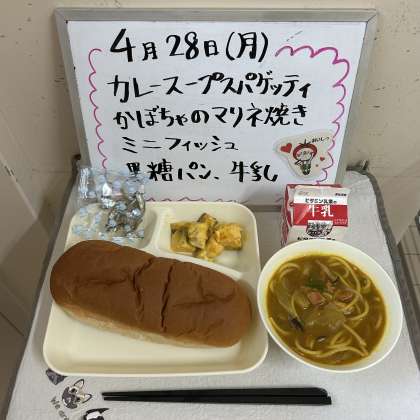 4月28日(月)
カレースープスパゲッティ
かぼちゃのマリネ焼き
ミニフィッシュ
黒糖パン、牛乳
おいしっ
ビタミン乳業の
牛乳
We are